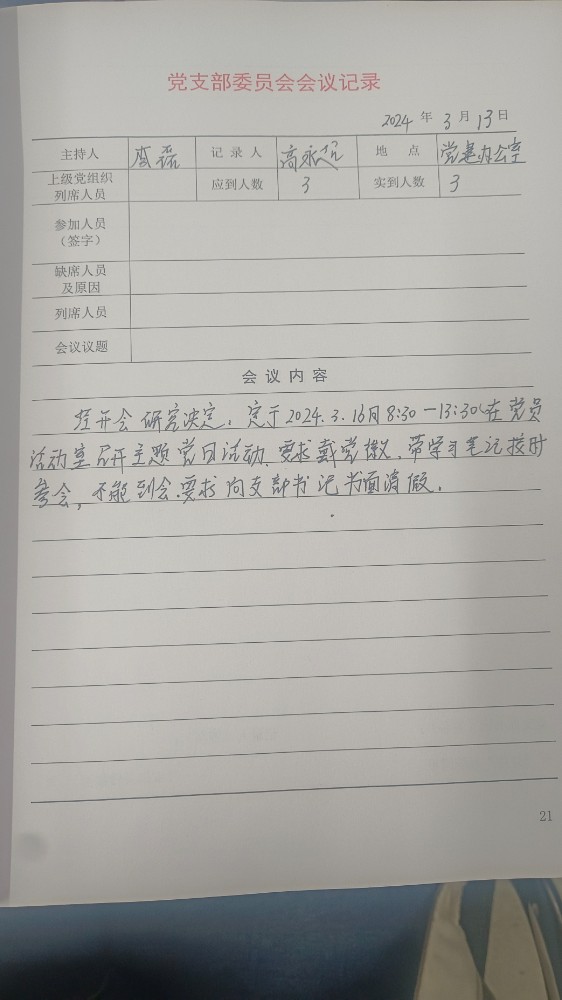 党支部委员会会议记录
2024 年 3 月 13 日
主持人 李磊 记录人 高永 地点 党建办公室
上级党组织
列席人员 应到人数 3 实到人数 3
参加人员
（签字）
缺席人员
及原因
列席人员
会议议题
会议内容
经开会研究决定，定于2024.3.16月8:30—13:30在党员
活动室召开主题党日活动、要求戴党徽、带学习笔记按时
参会，不能到会.要求向支部书记书面请假.
21